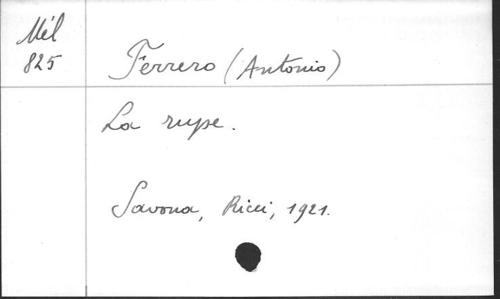 Mél
825
Ferrero (Antonio)
La rupe.
Savona, Ricci, 1921.